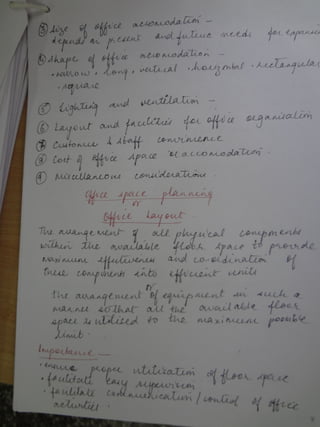 ③ Size of office accomodation –
depends on present and future needs for expansion
④ Shape of office accomodation –
• narrow • long • vertical • horizontal • rectangular
• square
⑤ Lighting and ventilation –
⑥ Layout and facilities for office organisation
⑦ Customer & staff convinience
⑧ Cost of office space or accomodation.
⑨ Miscellaneous considerations
Office space planning
or
Office Layout
The arrangement of all physical components
within the available floor space to provide
maximum effectiveness and co-ordination of
these components into efficient units
or
the arrangement of equipment in such a
manner so that all the available floor
space is utilised to the maximum possible
limit.
Importance –
• proper utilization of floor space
• facilitate easy supervision
• facilitate communication / control of office
activities.